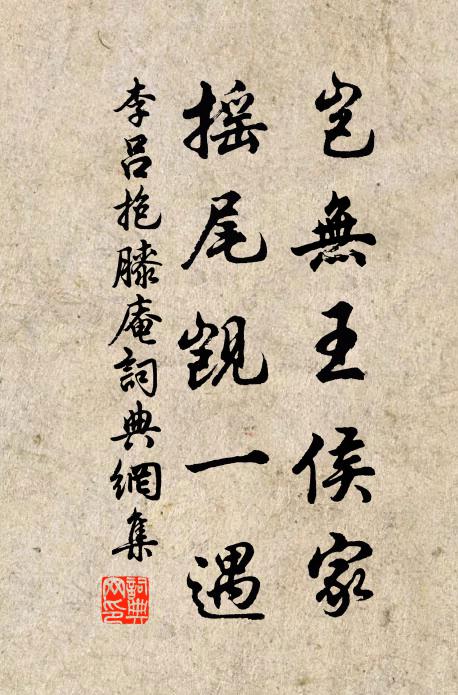 豈無王侯家
摇尾覬一遇
李吕抱膝庵詞典網集
詞典
网印